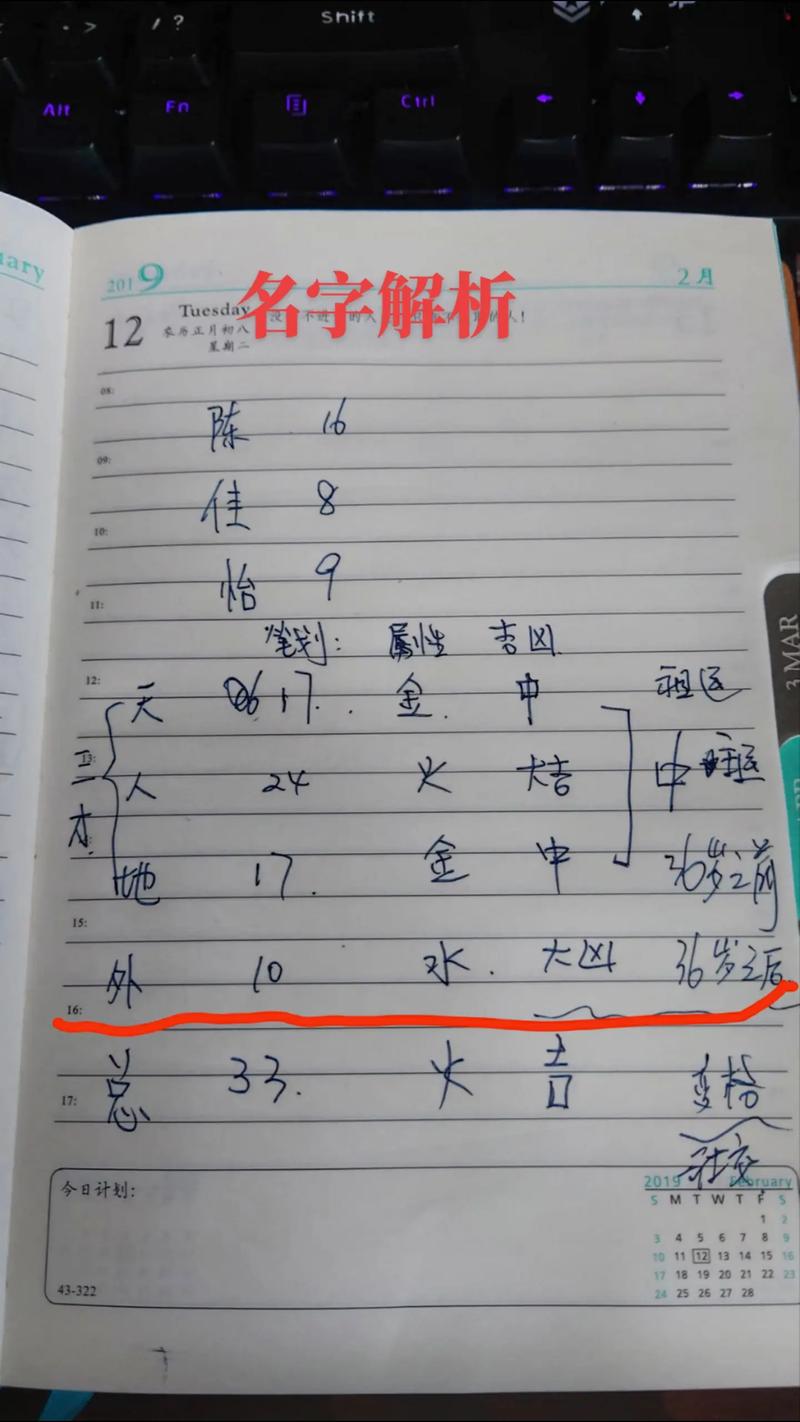 > / ?
Shift
Alt Fn Ctrl
uary
2019 2月
名字解析
12 Tuesday
农历正月初八
星期二
08:
陈 16
09:
佳 8
10:
怡 9
11:
笔划: 属性 吉凶
12:
天 17. 金. 中 祖运
13:
三才
人 24 火 大吉 中 主运
地 17. 金 中 36岁之前
15:
外 10 水. 大凶 36岁之后
16:
总 33. 火 吉 变格
17:
社交
今日计划:
2019 February
S M T W T F S
1 2
3 4 5 6 7 8 9
10 11 12 13 14 15 16
17 18 19 20 21 22 23
24 25 26 27 28
43-322
3 MAR